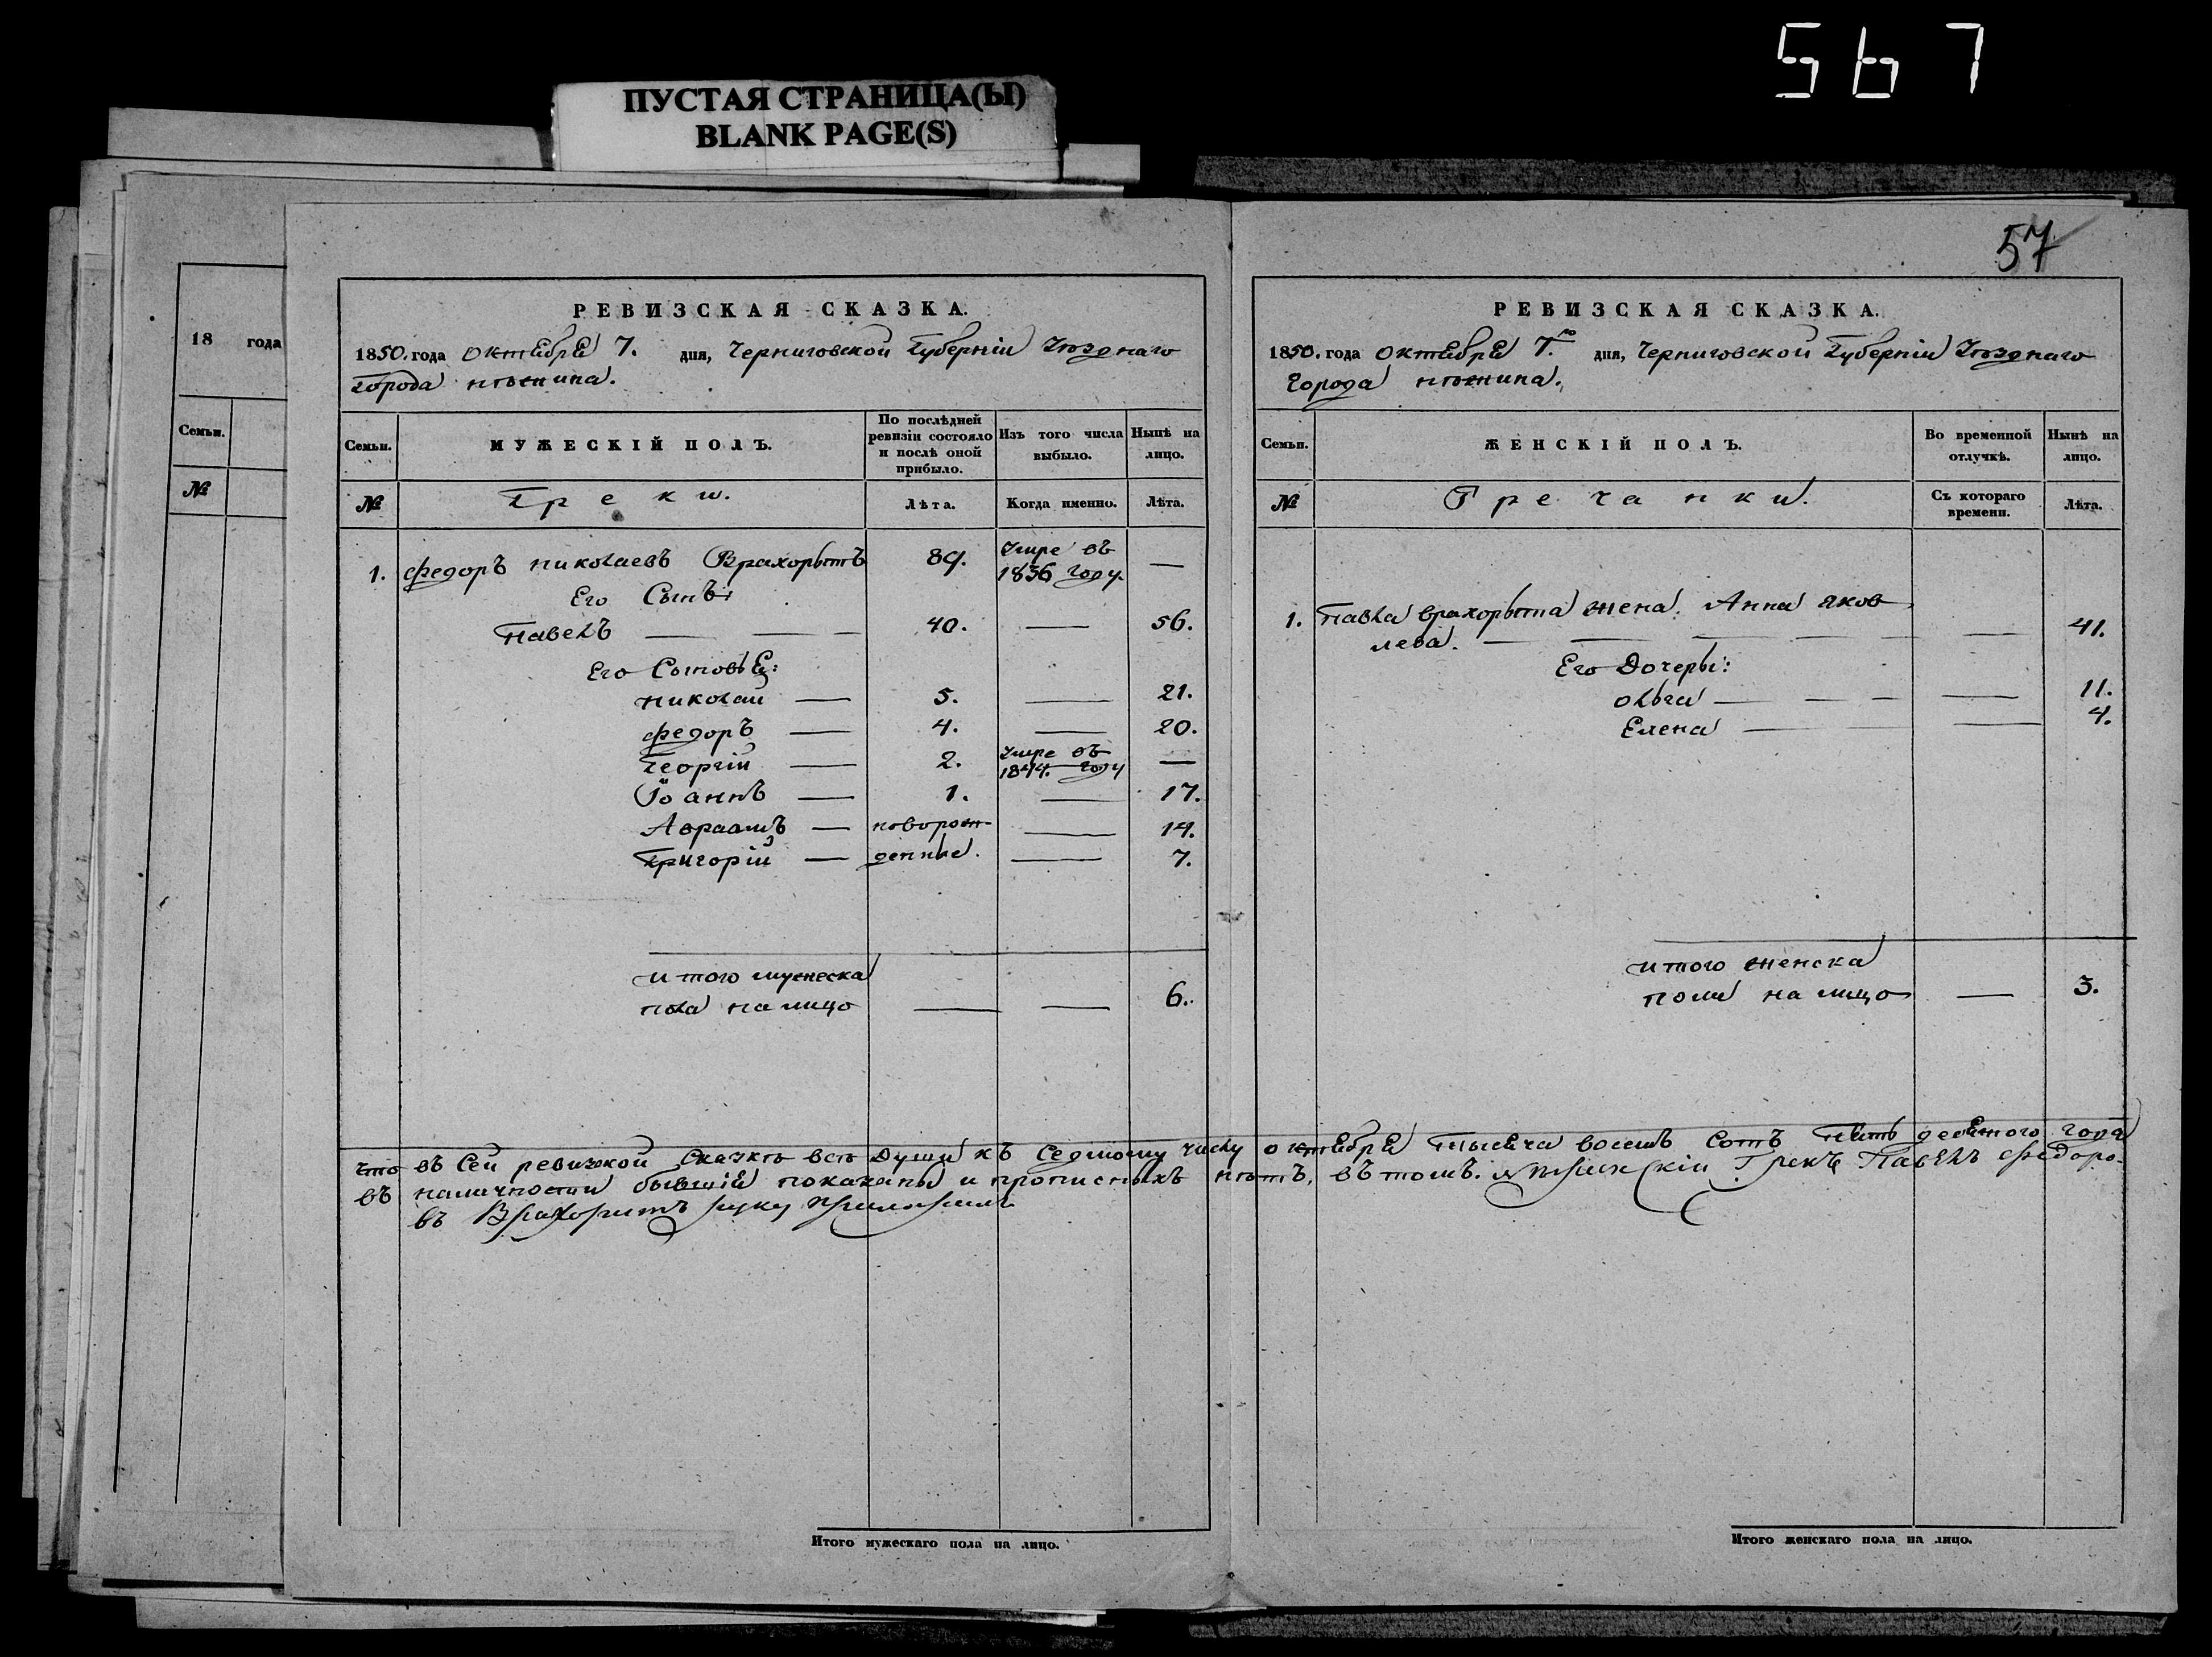 567
ПУСТАЯ СТРАНИЦА(Ы)
BLANK PAGE(S)
57
18 года
Семьи.
№
РЕВИЗСКАЯ СКАЗКА.
1850. года октября 7. дня, Черниговской Губерніи Уѣзднаго
Города Нѣжина.
Семьи. МУЖЕСКІЙ ПОЛЪ. По послѣдней ревизіи состояло и послѣ оной прибыло. Изъ того числа выбыло. Нынѣ на лицо.
№ Греки. Лѣта. Когда именно. Лѣта.
1. Федоръ Николаевъ Врахорытъ 89. Умре въ 1836 году. —
Его Сынъ:
Павелъ — — — 40. — 56.
Его Сыновья:
Николай — 5. — 21.
Федоръ — 4. — 20.
Георгій — 2. Умре въ 1844. году —
Іоаннъ — 1. — 17.
Авраамъ — новорож- — 14.
Григорій — денные. — 7.
Итого мужеска
пола на лицо — — 6.
РЕВИЗСКАЯ СКАЗКА.
1850. года октября 7.го дня, Черниговской Губерніи Уѣзднаго
Города Нѣжина.
Семьи. ЖЕНСКІЙ ПОЛЪ. Во временной отлучкѣ. Нынѣ на лицо.
№ Гречанки. Съ котораго времени. Лѣта.
1. Павла Врахорыта жена Анна Яков
лева. — — — — — — 41.
Его Дочери:
Ольга — — — — 11.
Елена — — 4.
Итого женска
пола на лицо — 3.
Что въ Сей ревизской Сказкѣ всѣ Души къ Седмому числу октября тысяча восемь Сотъ пять десятого года
въ наличности бывшія показаны и прописныхъ нѣтъ, въ томъ. Нѣжинскій Грекъ Павелъ Федоро-
въ Врахоритъ руку приложилъ
Итого мужескаго пола на лицо.
Итого женскаго пола на лицо.